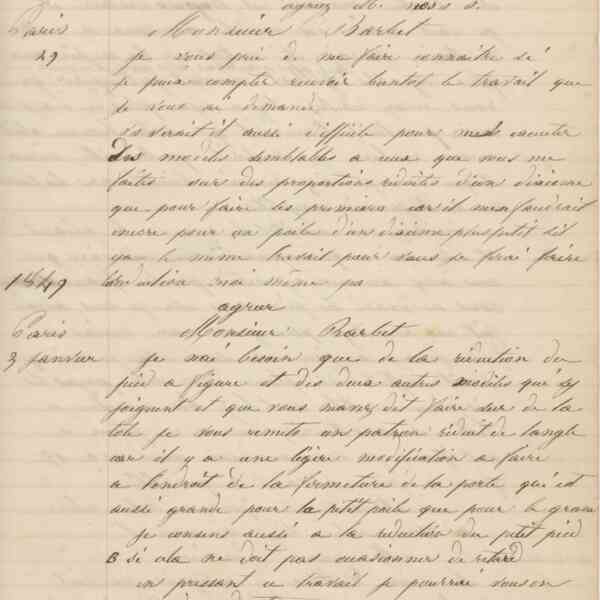 agréez M. nos s.
Paris Monsieur Barbet
29 je vous prie de me faire connaitre si
je puis compter recevoir bientot le travail que
je vous ai demandé
vs serait il aussi difficile pour executer
des modeles semblables a ceux que vous me
faites sur des proportions réduites d'un dixieme
que pour faire les premiers car il m'en faudrait
encore pour un poele d'un dixieme plus petit s'il
ya le meme travail pour vous je ferai faire
1849 moi même pa
agreer
Paris Monsieur Barbet
3 janvier je n'ai besoin que de la réduction du
pied a figure et des deux autres modeles qui s'y
joignent et que vous m'avez dit faire sur de la
tole je vous remets un patron réduit de l'angle
car il y a une légère modification a faire
a l'endroit de la fermeture de la porte qui est
aussi grande pour le petit poele que pour le grand
je consens aussi a la réduction du petit pied
B si cela ne doit pas occasionner de retard
en pressant ce travail je pourrai